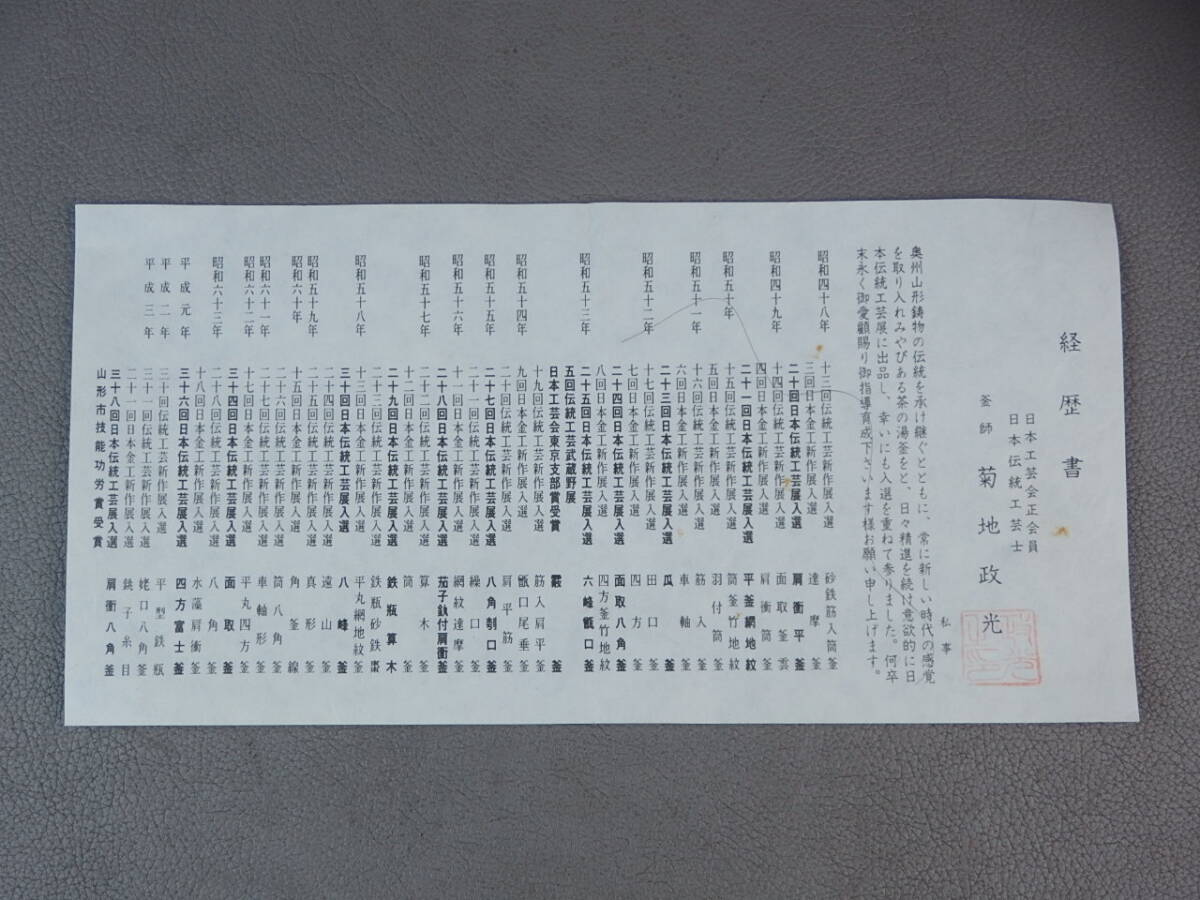 経歴書
日本工芸会正会員
日本伝統工芸士
釜師 菊地政光
私事
奥州山形鋳物の伝統を承け継ぐとともに、常に新しい時代の感覚
を取り入れみやびある茶の湯釜をと、日々精進を続け意欲的に日
本伝統工芸展に出品し、幸いにも入選を重ねて参りました。何卒
末永く御愛顧賜り御指導育成下さいます様お願い申し上げます。
昭和四十八年 十三回伝統工芸新作展入選 砂鉄筋入筒釜
三回日本金工新作展入選 達摩釜
二十回日本伝統工芸展入選 肩衝平釜
昭和四十九年 十四回伝統工芸新作展入選 面取釜雲
四回日本金工新作展入選 肩衝筒釜
二十一回日本伝統工芸展入選 平釜網地紋
昭和五十年 十五回伝統工芸新作展入選 筒釜竹地紋
五回日本金工新作展入選 羽付筒釜
昭和五十一年 十六回伝統工芸新作展入選 筋入釜
六回日本金工新作展入選 車軸釜
二十三回日本伝統工芸展入選 瓜釜
昭和五十二年 十七回伝統工芸新作展入選 田口釜
七回日本金工新作展入選 四方釜
二十四回日本伝統工芸展入選 面取八角釜
八回日本金工新作展入選 四方釜竹地紋
昭和五十三年 二十五回日本伝統工芸展入選 六峰甑口釜
五回伝統工芸武蔵野展
日本工芸会東京支部賞受賞 釜
昭和五十四年 十九回伝統工芸新作展入選 筋入肩平釜
九回日本金工新作展入選 甑口尾垂釜
二十回伝統工芸新作展入選 肩平筋釜
昭和五十五年 二十七回日本伝統工芸展入選 八角刳口釜
二十一回伝統工芸新作展入選 繰口釜
昭和五十六年 十一回日本金工新作展入選 網紋達摩釜
二十八回日本伝統工芸展入選 茄子釻付肩衝釜
昭和五十七年 二十二回伝統工芸新作展入選 算木釜
十二回日本金工新作展入選 筒釜
二十九回日本伝統工芸展入選 鉄瓶算木
二十三回伝統工芸新作展入選 鉄瓶砂鉄棗
昭和五十八年 十三回日本金工新作展入選 平丸網地紋釜
三十回日本伝統工芸展入選 八峰釜
二十四回伝統工芸新作展入選 遠山釜
昭和五十九年 二十五回伝統工芸新作展入選 真形釜
昭和六十年 十五回日本金工新作展入選 角釜線
二十六回伝統工芸新作展入選 筒八角釜
昭和六十一年 二十七回伝統工芸新作展入選 車軸形釜
昭和六十二年 十七回日本金工新作展入選 平丸四方釜
三十四回日本伝統工芸展入選 面取釜
昭和六十三年 十八回日本金工新作展入選 八角釜
二十八回伝統工芸新作展入選 水藻肩衝釜
平成元年 三十六回日本伝統工芸展入選 四方富士釜
平成二年 三十回伝統工芸新作展入選 平型鉄瓶
平成三年 三十一回伝統工芸新作展入選 姥口八角釜
二十一回日本金工新作展入選 銚子糸目
三十八回日本伝統工芸展入選 肩衝八角釜
山形市技能功労賞受賞